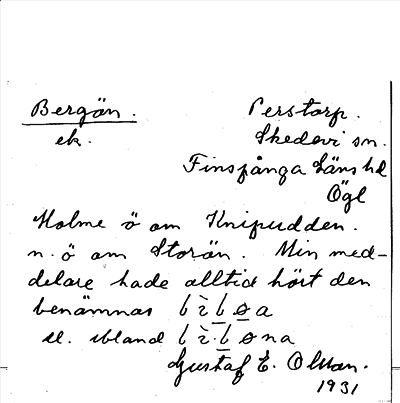 Bergön.
Perstorp.
ek.
Skedevi sn.
Finspånga läns hd
Ögl
Holme ö om Knipudden.
n. ö om Storön. Min med-
delare hade alltid hört den
benämnas
el. ibland
Gustaf E. Olsson.
1931